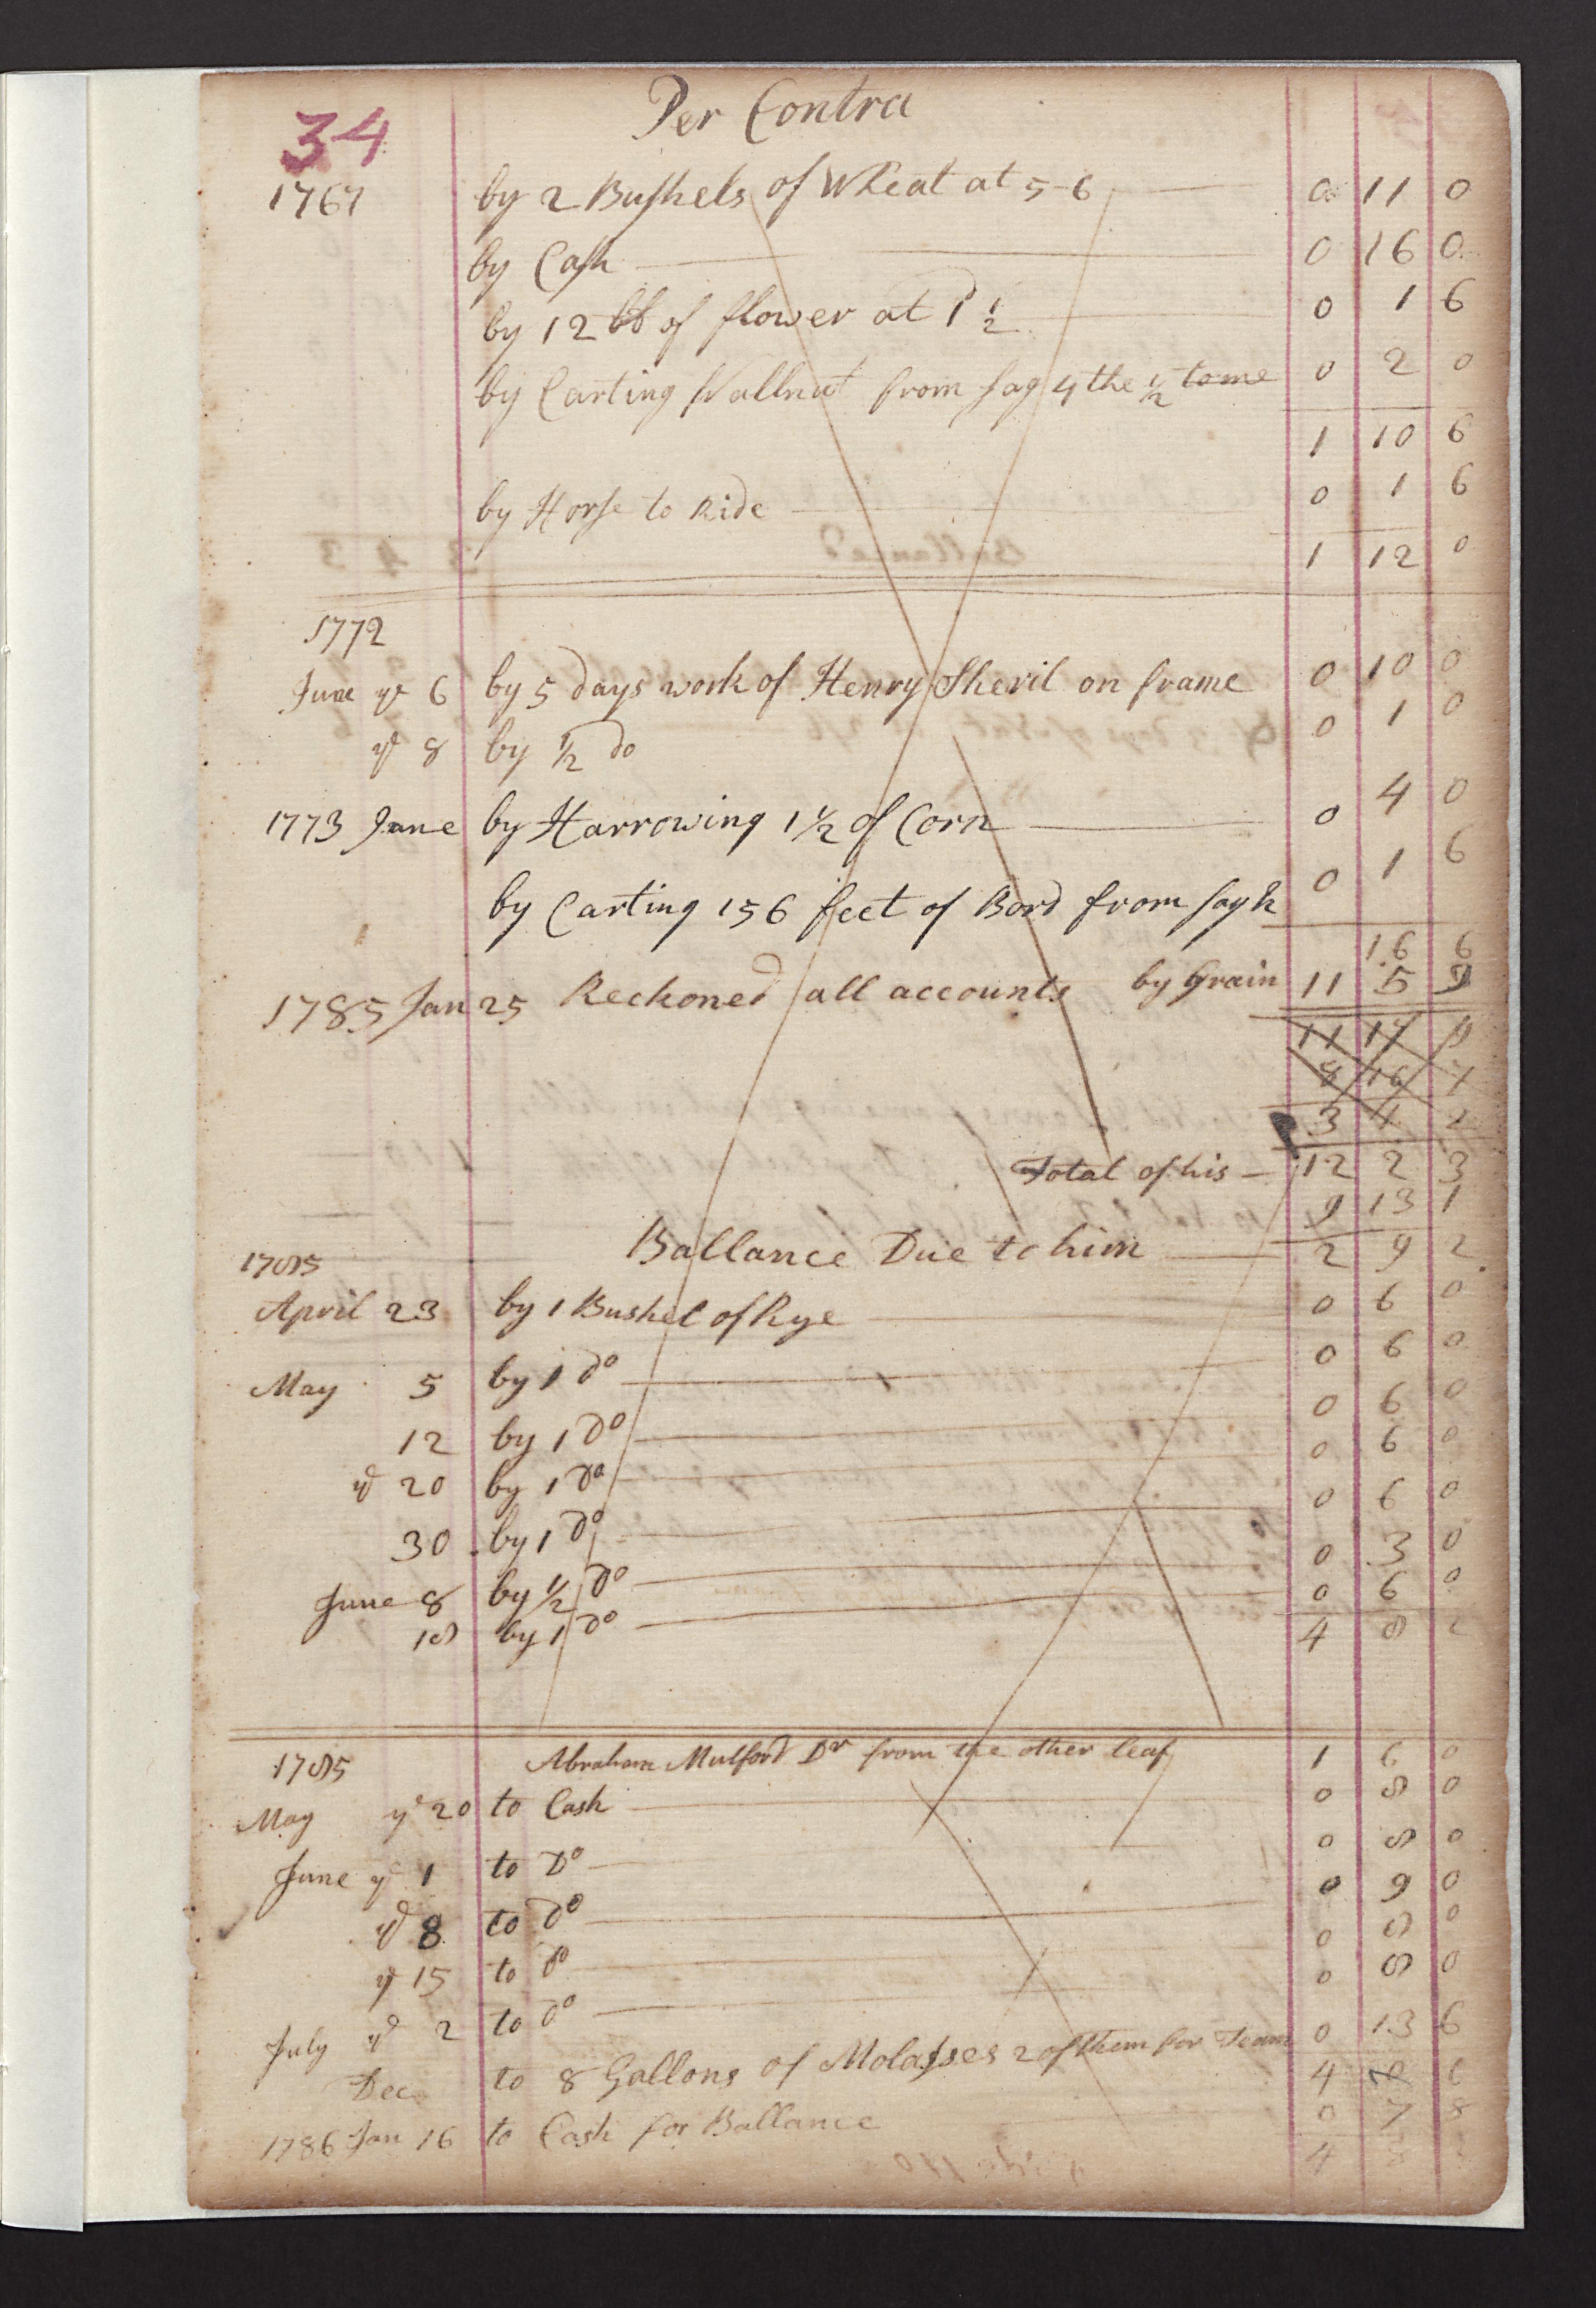 34
Per Contra
1767 by 2 Bushels of Wheat at 5-6 0 11 0
by Cash 0 16 0
by 12 lb of flower at 1 1/2 0 1 6
by Carting Wallnut from Sag 4 the 1/2 to me 0 2 0
1 10 6
by Horse to Ride 0 1 6
1 12 0
1772
June ye 6 by 5 days work of Henry Sheril on frame 0 10 0
ye 8 by 1/2 do 0 1 0
1773 June by Harrowing 1 1/2 of Corn 0 4 0
by Carting 156 feet of Bord from Sagh 0 1 6
16 6
1785 Jan 25 Reckoned all accounts by Grain 11 5 9
11 17 9
8 16 7
3 4 2
Total of his 12 2 3
9 13 1
Ballance Due to him 2 9 2
1785
April 23 by 1 Bushel of Rye 0 6 0
May 5 by 1 do 0 6 0
12 by 1 do 0 6 0
ye 20 by 1 do 0 6 0
30 by 1 do 0 6 0
June 8 by 1/2 do 0 3 0
18 by 1 do 0 6 0
4 8 2
1785 Abraham Mulford Dr from the other leaf 1 6 0
May ye 20 to Cash 0 8 0
June ye 1 to Do 0 8 0
ye 8 to do 0 9 0
ye 15 to do 0 8 0
July ye 2 to do 0 8 0
Dec to 8 Gallons of Molasses 2 of them for Team 0 13 6
4 6
1786 Jan 16 to Cash for Ballance 0 7 8
4